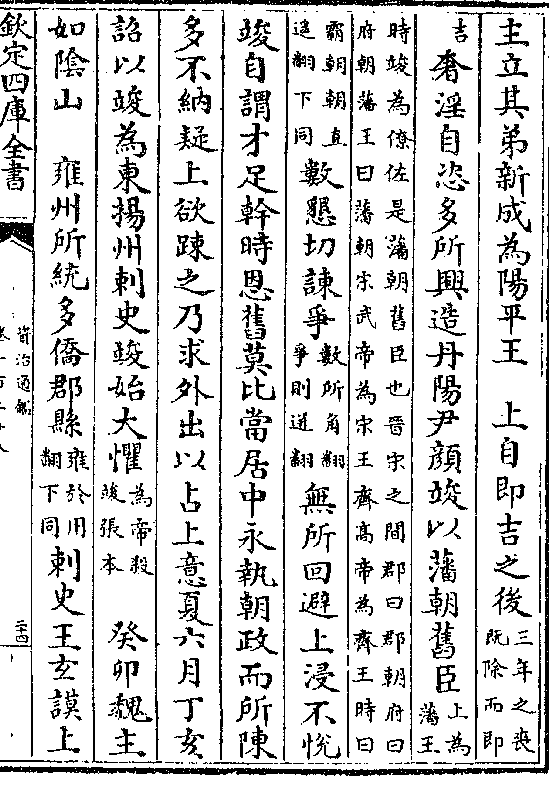 主立其弟新成為陽平王　上自即吉之後三年之喪既除而即
吉奢淫自恣多所興造丹陽尹顔竣以藩朝舊臣上為藩王
時竣為僚佐是藩朝舊臣也晉宋之間郡曰郡朝府曰
府朝藩王曰藩朝宋武帝為宋王齊髙帝為齊王時曰
霸朝朝直遥翻下同數懇切諫爭數所角翻爭則迸翻無所回避上浸不悅
竣自謂才足幹時恩舊莫比當居中永執朝政而所陳
多不納疑上欲踈之乃求外出以占上意夏六月丁亥
詔以竣為東揚州刺史竣始大懼為帝殺竣張本　癸卯魏主
如陰山　雍州所統多僑郡縣雍於用翻下同刺史王玄謨上
欽定四庫全書
資治通鑑
二十四